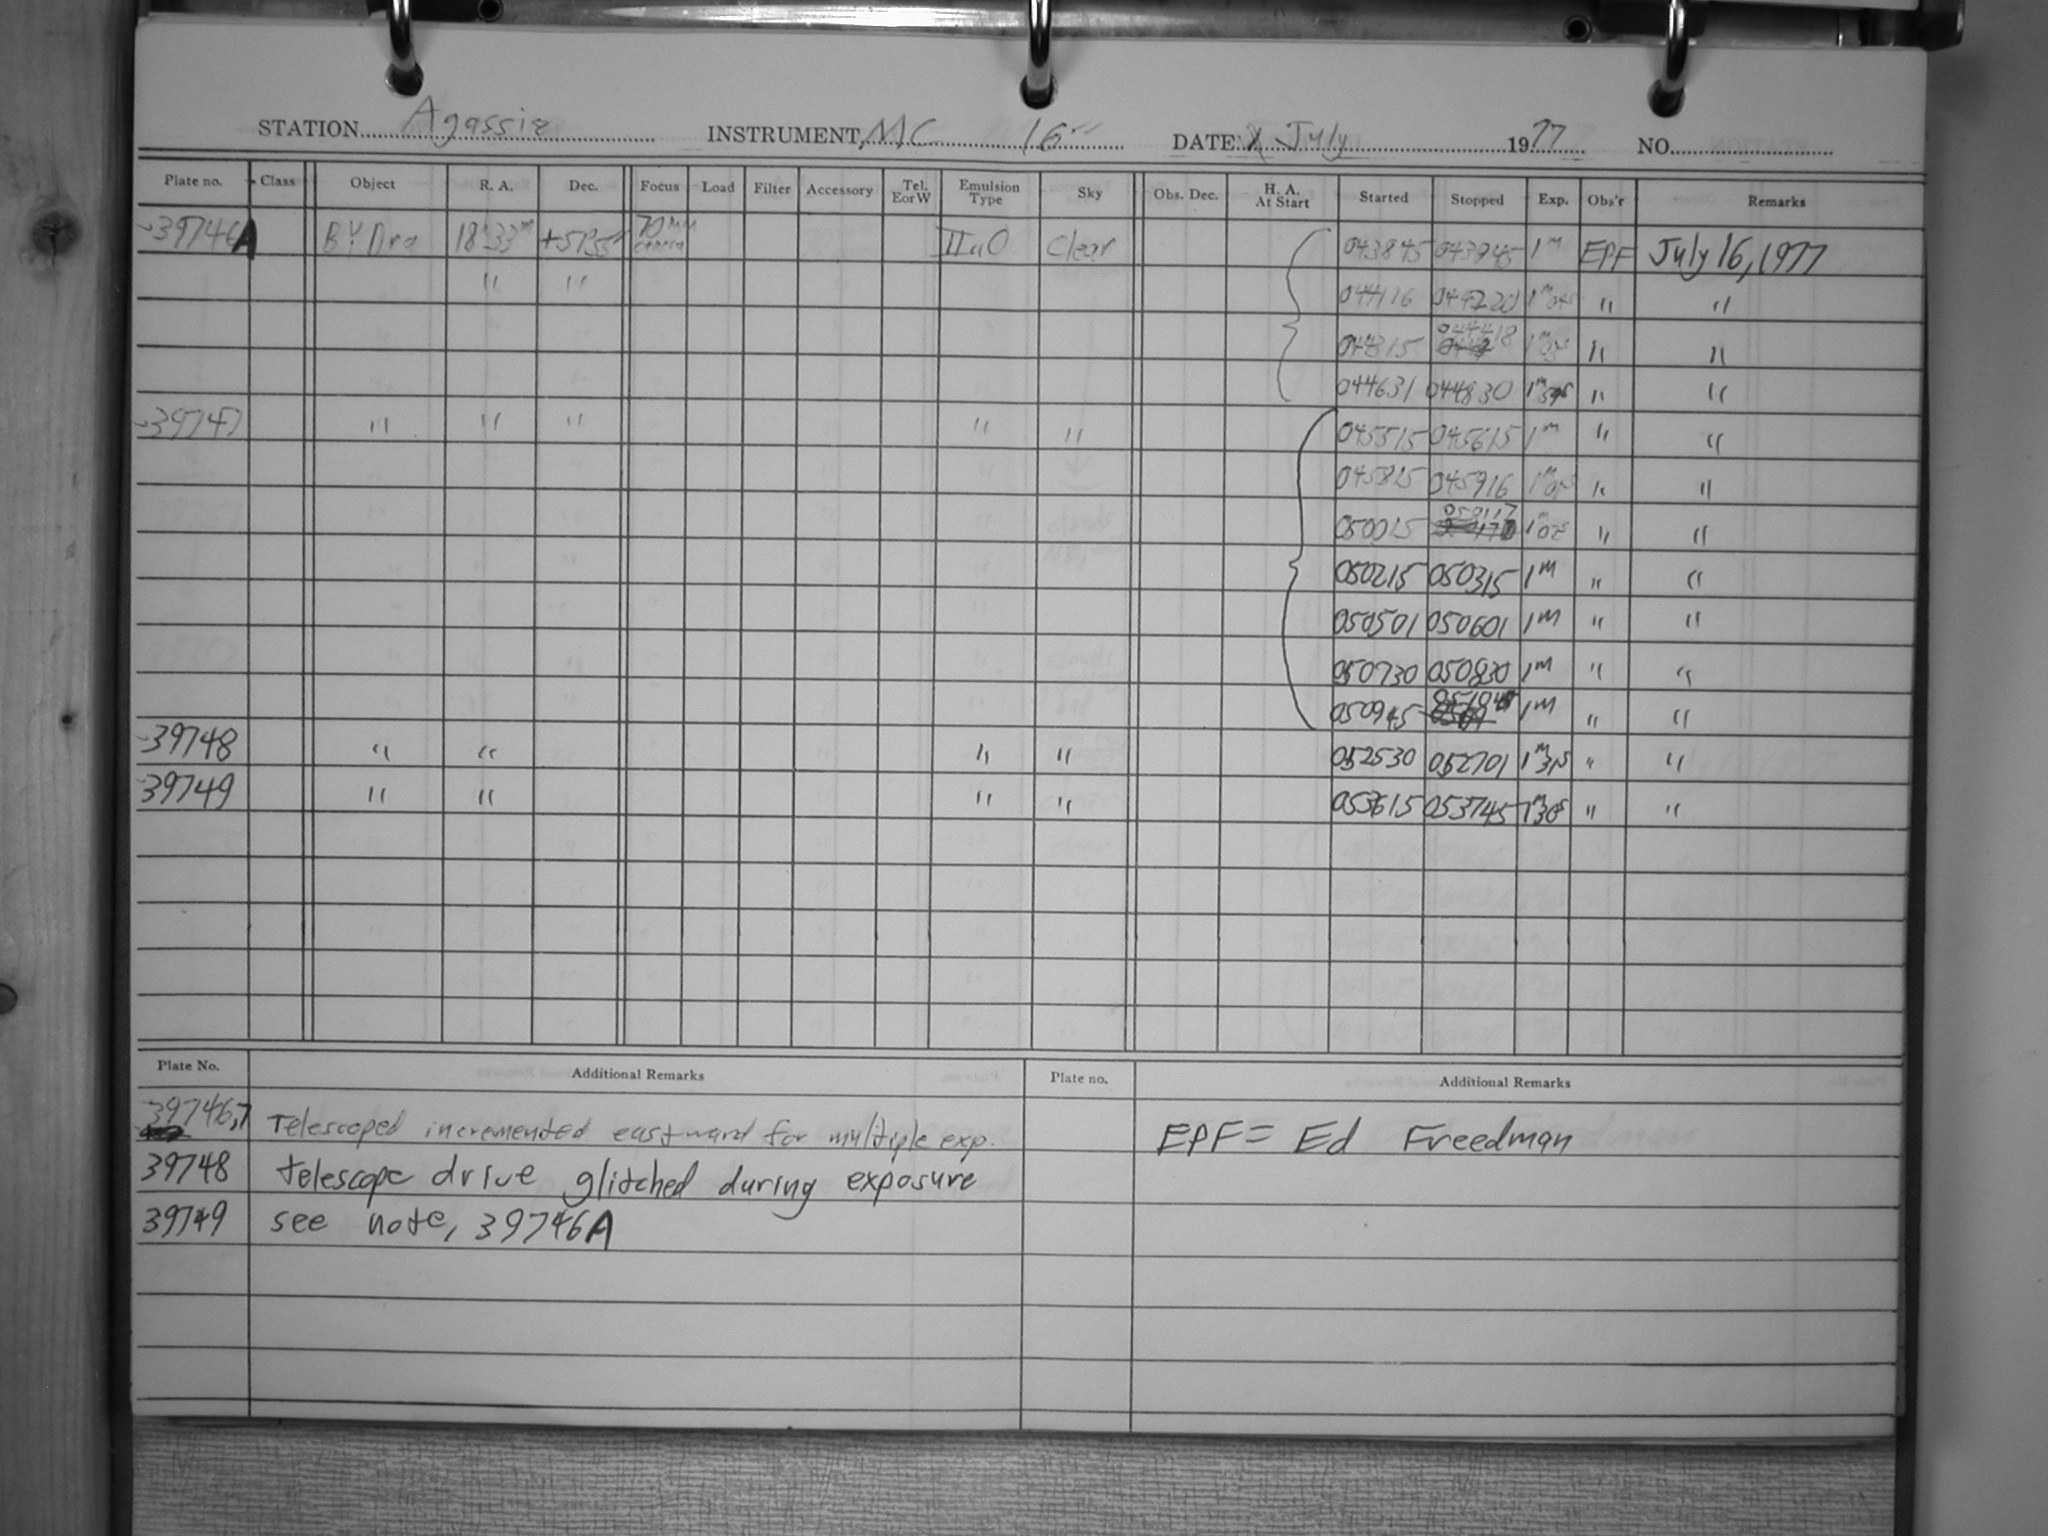 STATION Agassiz INSTRUMENT MC 16" DATE July 1977 NO.
Plate no. Class Object R. A. Dec. Focus Load Filter Accessory Tel. E or W Emulsion Type Sky Obs. Dec. H. A. At Start Started Stopped Exp. Obs'r Remarks
39746A BY Dra 18h33m 70mm camera IIaO Clear 043845 043945 1m EPF July 16, 1977
" " 044116 044220 1m04s " "
044315 044418 " "
044631 044830 " "
39747 " " " " " 045515 045615 1m " "
045815 045916 1m01s " "
050015 1m02s " "
050215 050315 1m " "
050501 050601 1m " "
050730 050830 1m " "
050945 1m " "
39748 " " " " 052530 052701 1m31s " "
39749 " " " " 053615 053745 1m30s " "
Plate No. Additional Remarks Plate no. Additional Remarks
39746,7 Telescoped incremented eastward for multiple exp. EPF = Ed Freedman
39748 telescope drive glitched during exposure
39749 see note, 39746A